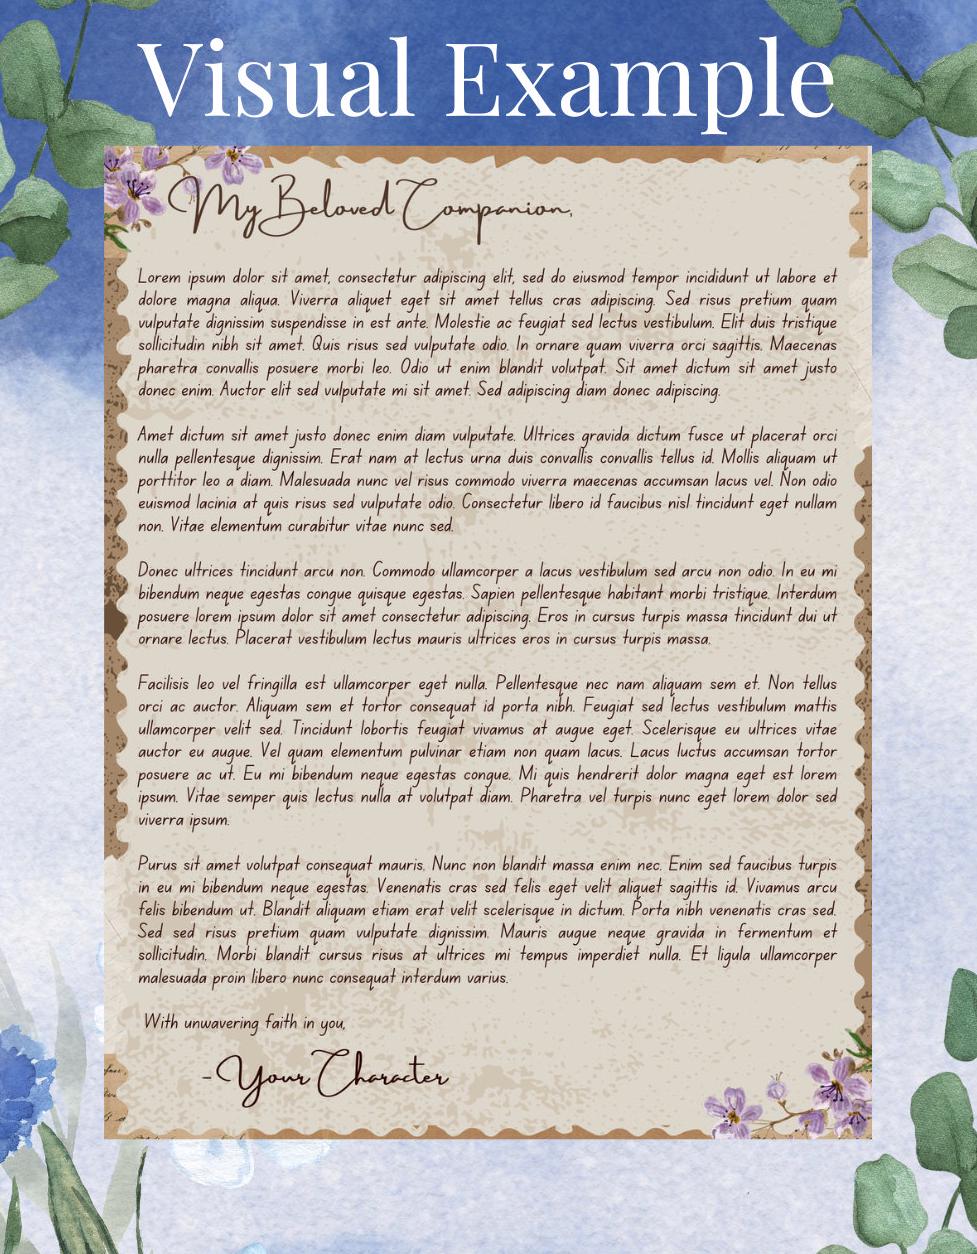 Visual Example
My Beloved Companion,
Lorem ipsum dolor sit amet, consectetur adipiscing elit, sed do eiusmod tempor incididunt ut labore et
dolore magna aliqua. Viverra aliquet eget sit amet tellus cras adipiscing. Sed risus pretium quam
vulputate dignissim suspendisse in est ante. Molestie ac feugiat sed lectus vestibulum. Elit duis tristique
sollicitudin nibh sit amet. Quis risus sed vulputate odio. In ornare quam viverra orci sagittis. Maecenas
pharetra convallis posuere morbi leo. Odio ut enim blandit volutpat. Sit amet dictum sit amet justo
donec enim. Auctor elit sed vulputate mi sit amet. Sed adipiscing diam donec adipiscing.
Amet dictum sit amet justo donec enim diam vulputate. Ultrices gravida dictum fusce ut placerat orci
nulla pellentesque dignissim. Erat nam at lectus urna duis convallis convallis tellus id. Mollis aliquam ut
porttitor leo a diam. Malesuada nunc vel risus commodo viverra maecenas accumsan lacus vel. Non odio
euismod lacinia at quis risus sed vulputate odio. Consectetur libero id faucibus nisl tincidunt eget nullam
non. Vitae elementum curabitur vitae nunc sed.
Donec ultrices tincidunt arcu non. Commodo ullamcorper a lacus vestibulum sed arcu non odio. In eu mi
bibendum neque egestas congue quisque egestas. Sapien pellentesque habitant morbi tristique. Interdum
posuere lorem ipsum dolor sit amet consectetur adipiscing. Eros in cursus turpis massa tincidunt dui ut
ornare lectus. Placerat vestibulum lectus mauris ultrices eros in cursus turpis massa.
Facilisis leo vel fringilla est ullamcorper eget nulla. Pellentesque nec nam aliquam sem et. Non tellus
orci ac auctor. Aliquam sem et tortor consequat id porta nibh. Feugiat sed lectus vestibulum mattis
ullamcorper velit sed. Tincidunt lobortis feugiat vivamus at augue eget. Scelerisque eu ultrices vitae
auctor eu augue. Vel quam elementum pulvinar etiam non quam lacus. Lacus luctus accumsan tortor
posuere ac ut. Eu mi bibendum neque egestas congue. Mi quis hendrerit dolor magna eget est lorem
ipsum. Vitae semper quis lectus nulla at volutpat diam. Pharetra vel turpis nunc eget lorem dolor sed
viverra ipsum.
Purus sit amet volutpat consequat mauris. Nunc non blandit massa enim nec. Enim sed faucibus turpis
in eu mi bibendum neque egestas. Venenatis cras sed felis eget velit aliquet sagittis id. Vivamus arcu
felis bibendum ut. Blandit aliquam etiam erat velit scelerisque in dictum. Porta nibh venenatis cras sed.
Sed sed risus pretium quam vulputate dignissim. Mauris augue neque gravida in fermentum et
sollicitudin. Morbi blandit cursus risus at ultrices mi tempus imperdiet nulla. Et ligula ullamcorper
malesuada proin libero nunc consequat interdum varius.
With unwavering faith in you,
-Your Character